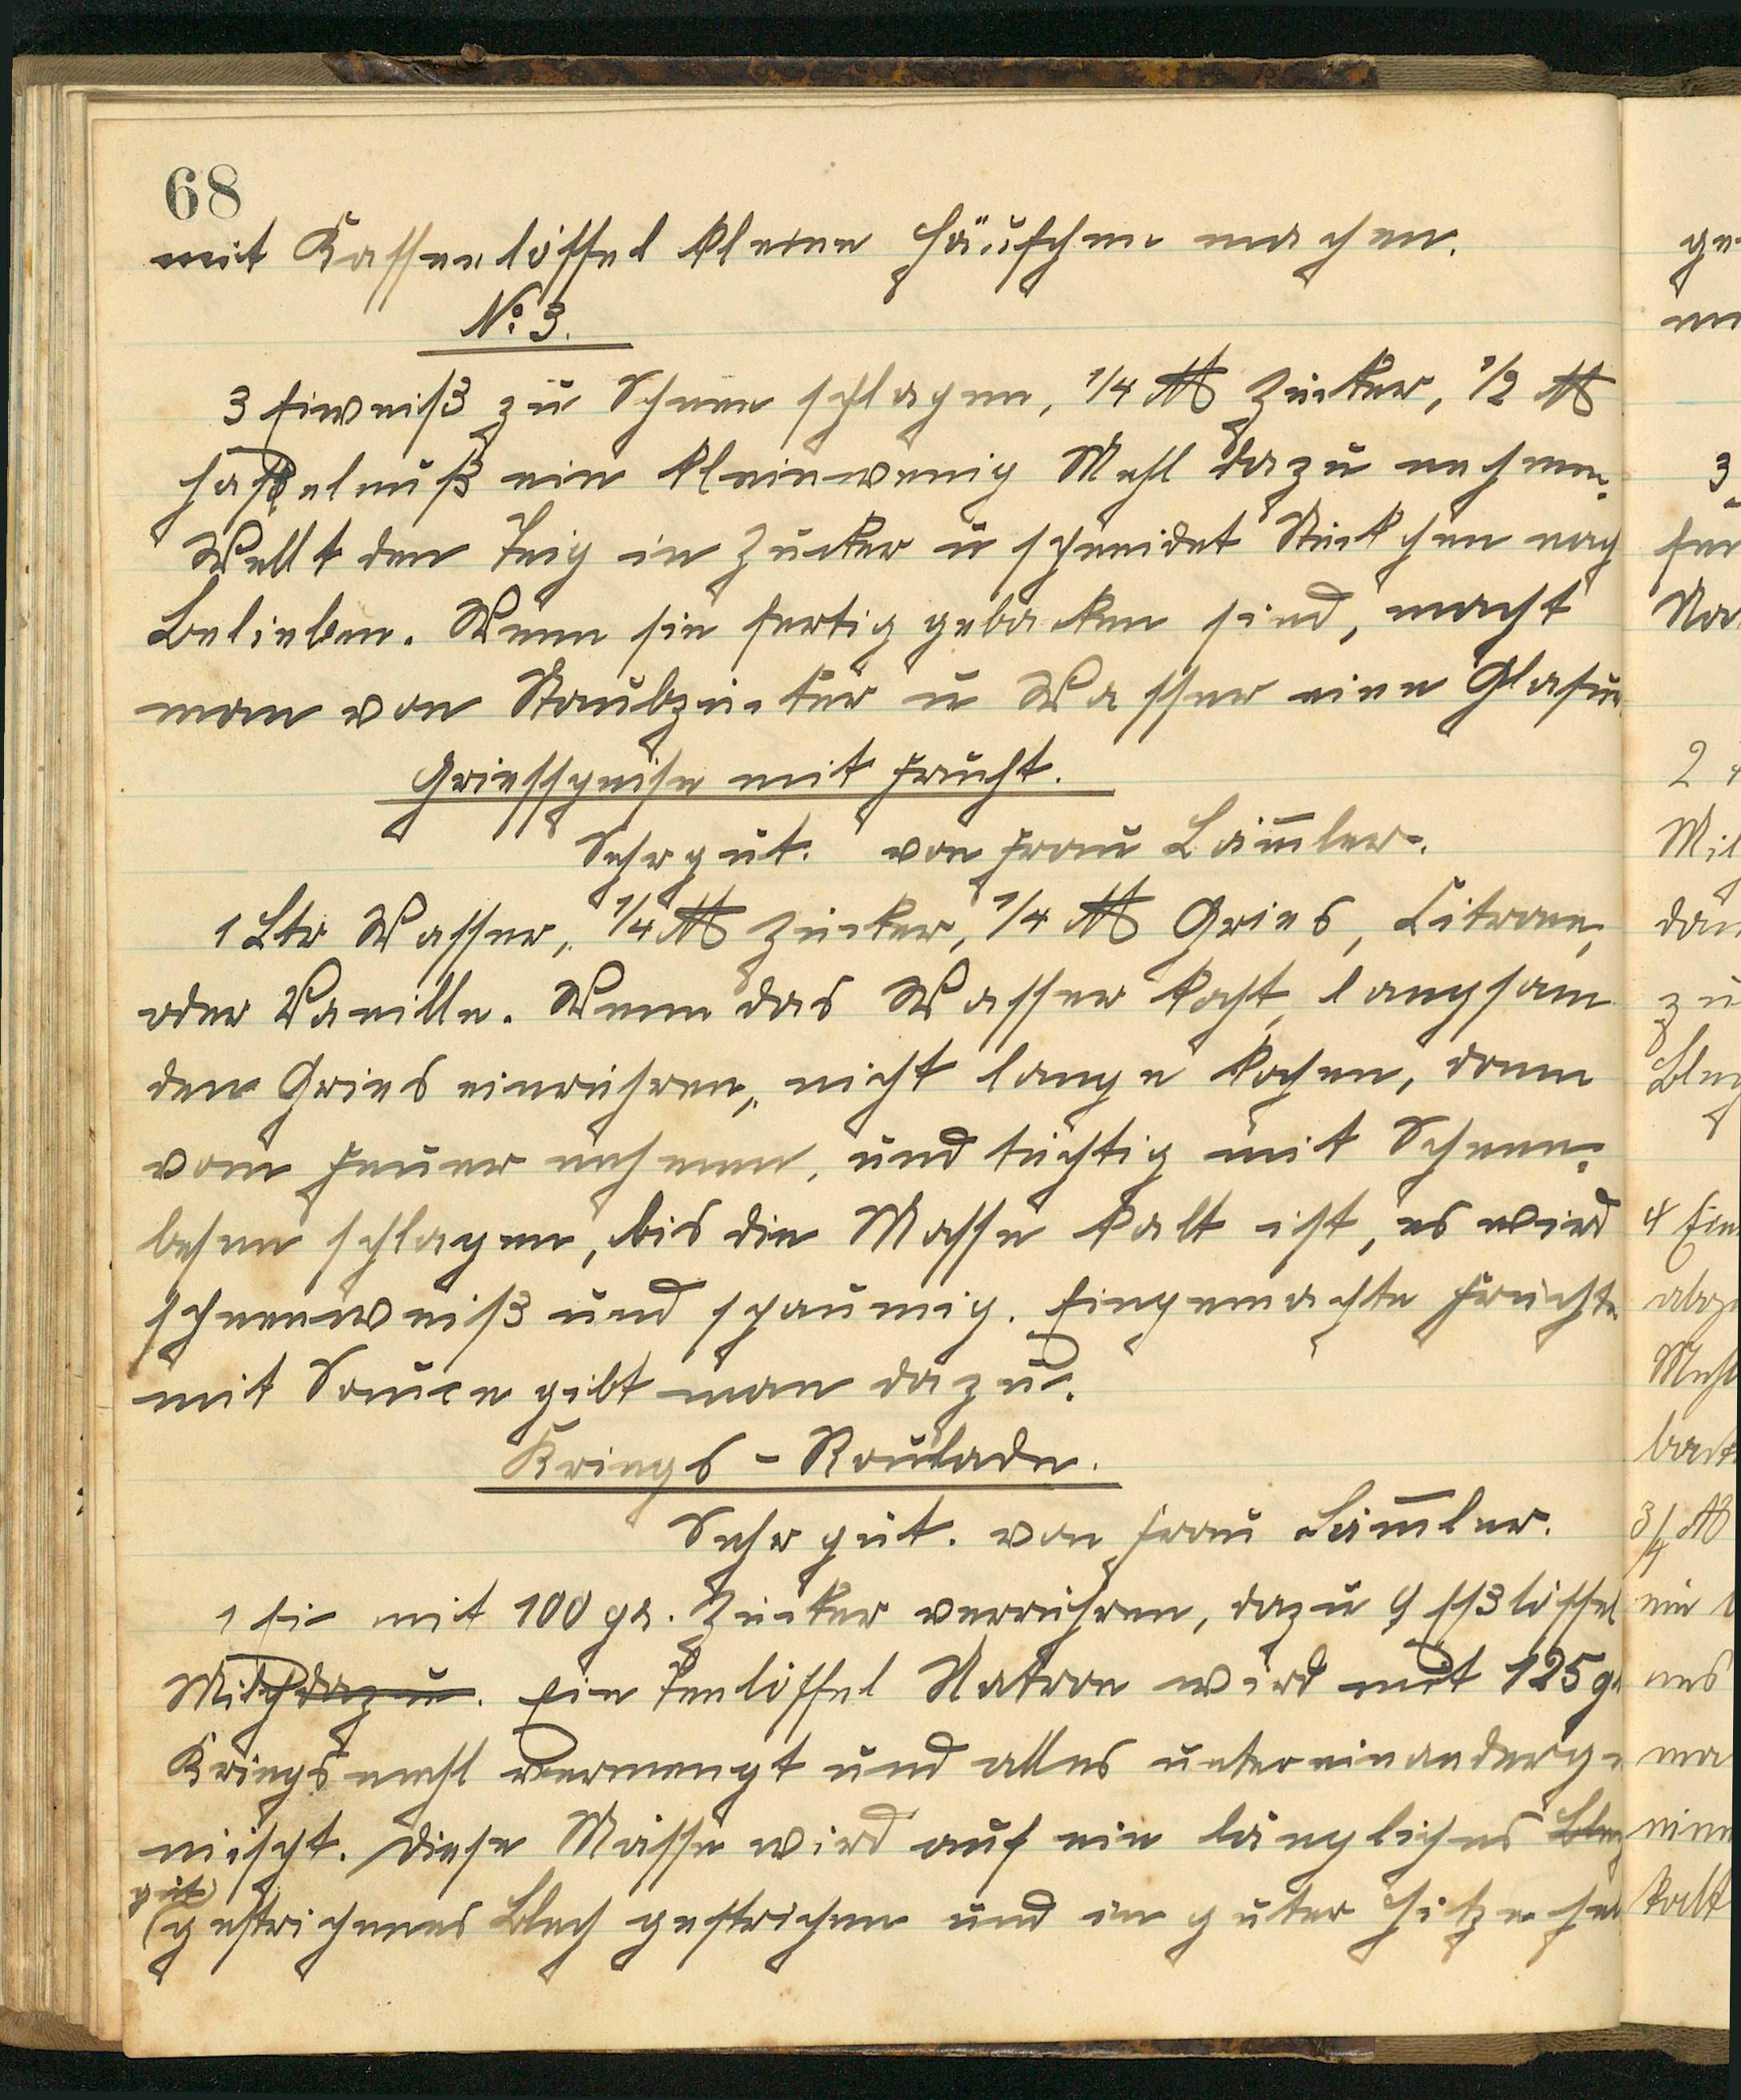 68
mit Kaffeelöffel kleine Häufchen machen.
No 3.
3 Eiweiß zu Schnee schlagen, 1/4 ℔ Zucker, 1/2 ℔
Haßelnuß ein kleinwenig Mehl dazu nehmen.
Wellt den Teig in Zucker u schneidet Stückchen nach
Belieben. Wenn sie fertig gebacken sind, macht
man von Staubzucker u Wasser eine Glasur
Griesspeise mit Frucht.
Sehr gut. von Frau Läm̄ler.
1 Ltr Wasser, 1/4 ℔ Zucker, 1/4 ℔ Gries, Citrone,
oder Vanille. Wenn das Wasser kocht, langsam
den Gries einrühren, nicht lange kochen, dann
vom Feuer nehmen, und tüchtig mit Schnee-
besen schlagen, bis die Masse kalt ist, es wird
schneeweiß und schaumig. Eingemachte Früchte
mit Sauce gibt man dazu.
Kriegs-Roulade.
Sehr gut. von Frau Läm̄ler.
1 Ei mit 100 gr. Zucker verrühren, dazu 9 Eßlöffel
Milch dazu. Ein Teelöffel Natron wird mit 125 gr
Kriegsmehl vermengt und alles untereinanderge-
mischt. Diese Masse wird auf ein längliches Blech
gut
(gestrichenes Blech gestrichen und in guter Hitze